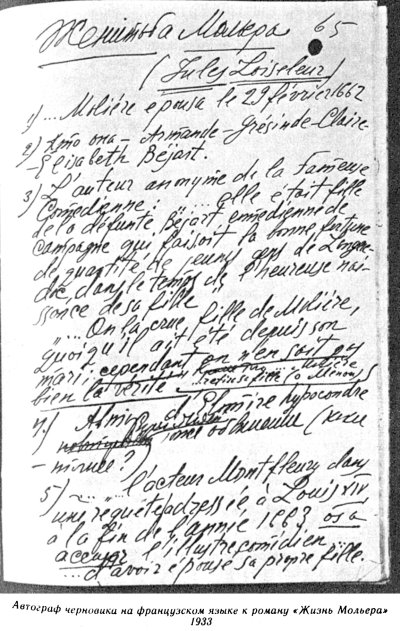 Женитьба Мольера 65
(Jules Loiseleur)
1) ... Molière epousa le 29 février 1662
2) Кто она – Armande-Grésinde-Claire-
Elisabeth Béjart.
3) L'auteur anonyme de la Fameuse
Comédienne: "... elle était fille
de la défunte Béjart, comédienne de
campagne qui faisoit la bonne fortune
de quantité de jeunes gens de Langue-
doc, dans le temps de l'heureuse nais-
sance de sa fille
"... On la crue fille de Molière,
quoiqu'il ait été depuis son
mari, cependant on n'en sait pas
bien la vérité
4) Elomire hypocondre
обвинение (какие
– нибудь?)
5) ... l'acteur Montfleury dans
une requête adressée à Louis XIV
à la fin de l'année 1663, osa
accuser l'illustre comédien ...
... d'avoir épousé sa propre fille.
Автограф черновика на французском языке к роману «Жизнь Мольера»
1933